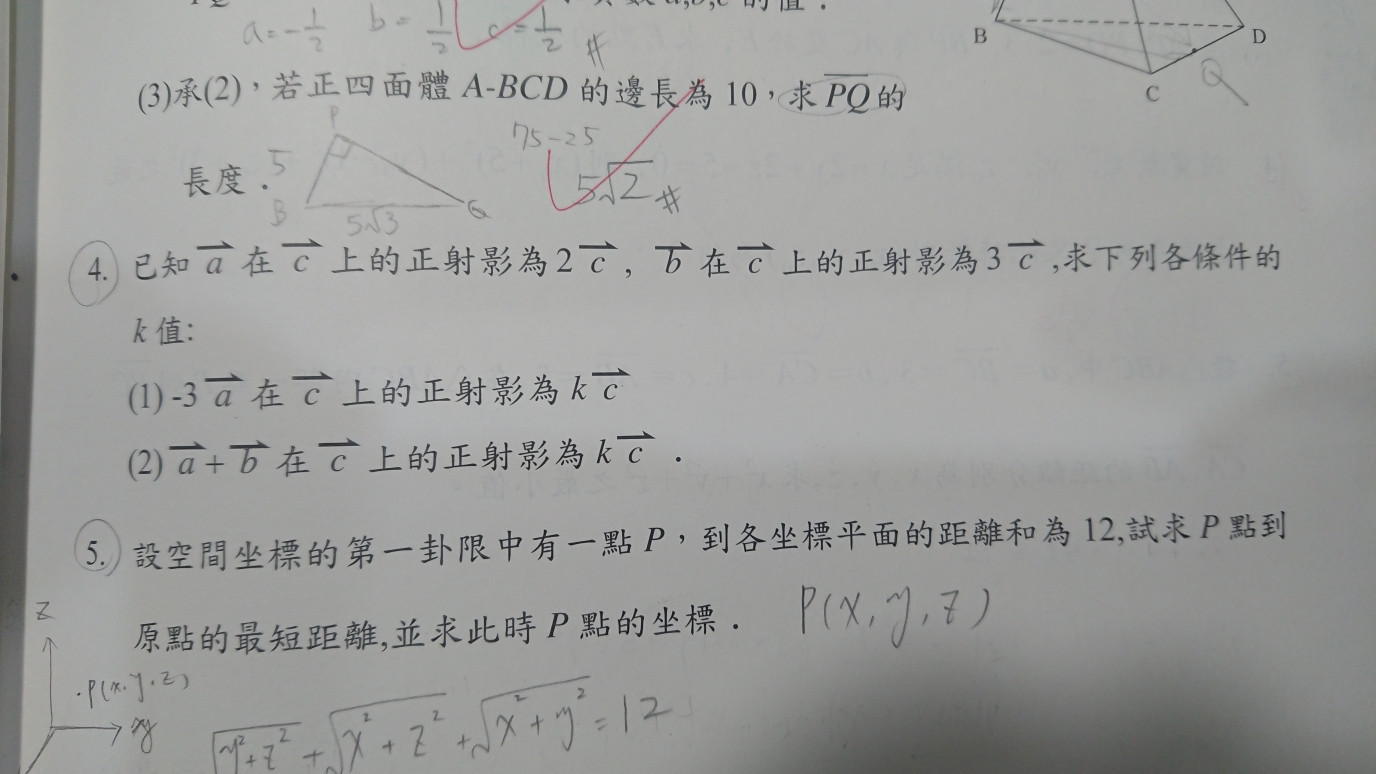 a=-1/2 b=1/2 c=1/2 #
B D
C Q
(3)承(2)，若正四面體 A-BCD 的邊長為 10，求 PQ 的
長度．
P
5
B 5√3 Q
75-25
5√2 #
4. 已知 a 在 c 上的正射影為 2 c , b 在 c 上的正射影為 3 c ,求下列各條件的
k 值:
(1) -3 a 在 c 上的正射影為 k c
(2) a + b 在 c 上的正射影為 k c ．
5. 設空間坐標的第一卦限中有一點 P，到各坐標平面的距離和為 12,試求 P 點到
原點的最短距離,並求此時 P 點的坐標． P(x, y, z)
z
·P(x, y, z)
√y²+z² + √x²+z² + √x²+y² = 12